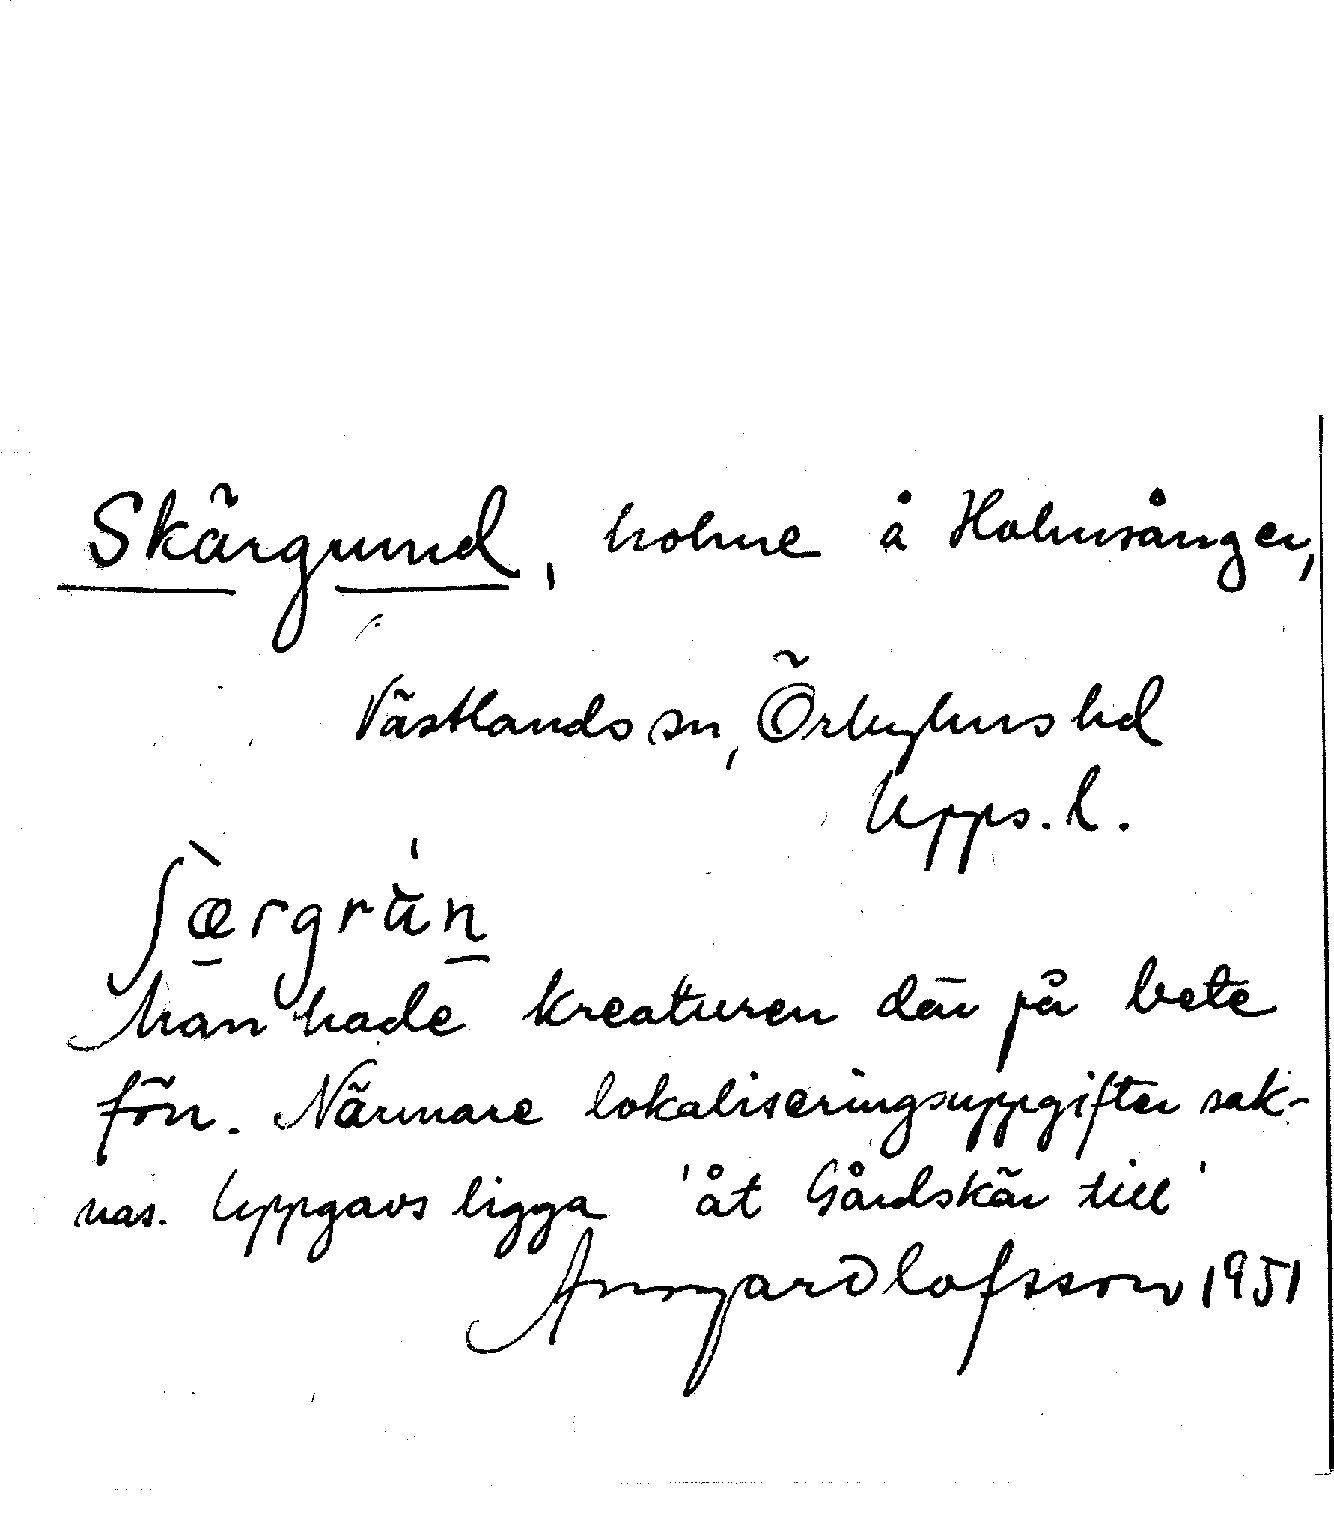 Skärgund, holme å Holmsånger,
Västlands sn, Örbyhus hd
Upps. l.
ʃæ̀rgrun
Man hade kreaturen där på bete
förr. Närmare lokaliseringsuppgifter sak-
nas. Uppgavs ligga 'åt Gårdskär till'
Olofsson 1951